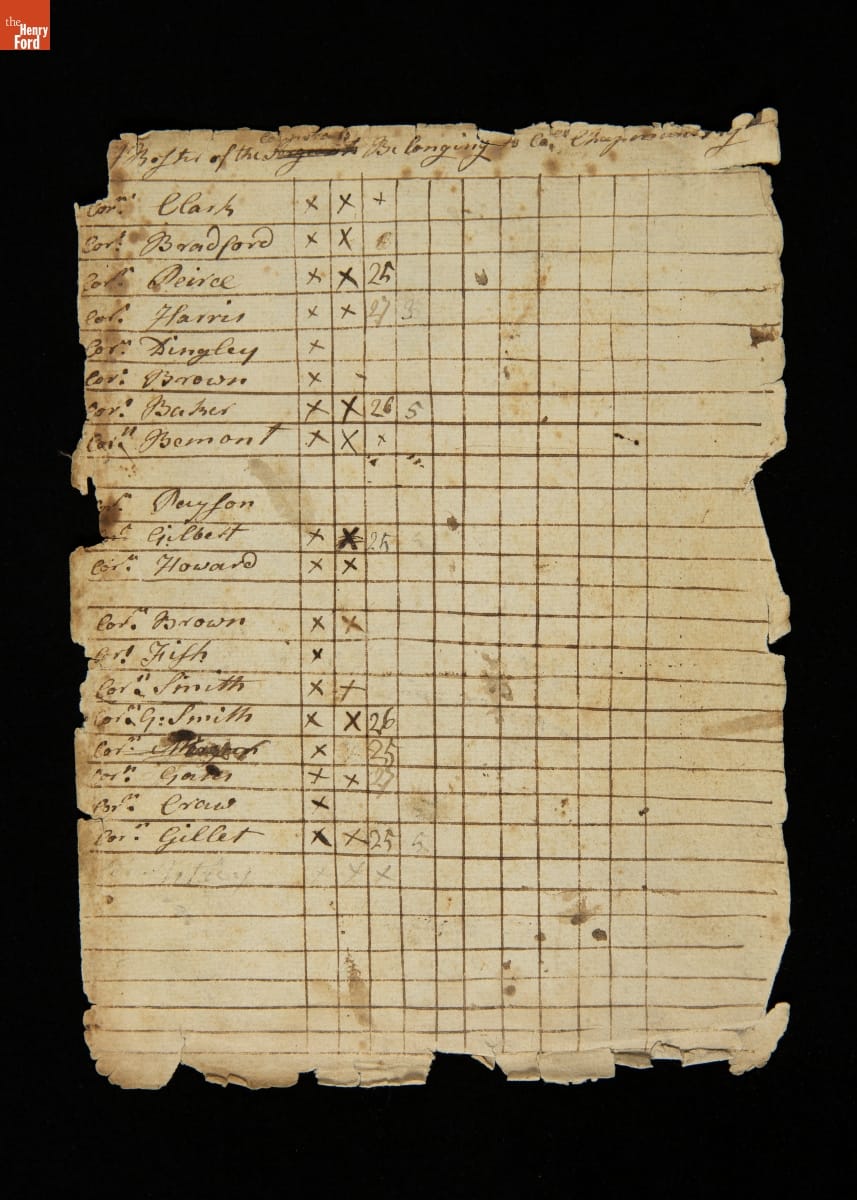 the
Henry
Ford
Corporals
Roster of the Belonging to Co.ll Chapmans
Cor.ll Clark x x +
Cor.l Bradford x x
Cor.ll Peirce x x 25
Cor.l Harris x x 27 3
Cor.ll Dingley x
Cor.l Brown x -
Cor.ll Baker x x 26 5
Cor.ll Bemont x x x
Payson
Gilbert x x 25
Cor.ll Howard x x
Cor.ll Brown x x
Cor.l Fish x
Cor.ll Smith x +
Cor.ll G: Smith x x 26
Cor.ll x 25
Cor.ll Gates x x 27
Cor.ll Craw x
Cor.ll Gillet x x 25 5
x x x